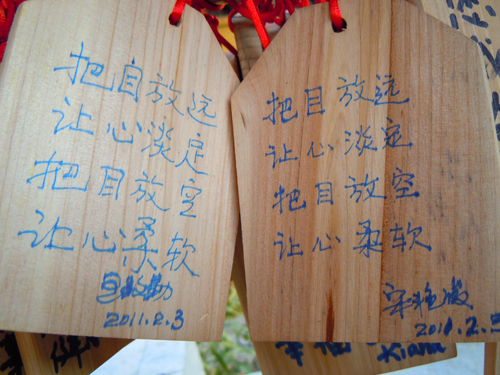 把自放远
让心淡定
把目放空
让心柔软
2011.2.3
把目放远
让心淡定
把目放空
让心柔软